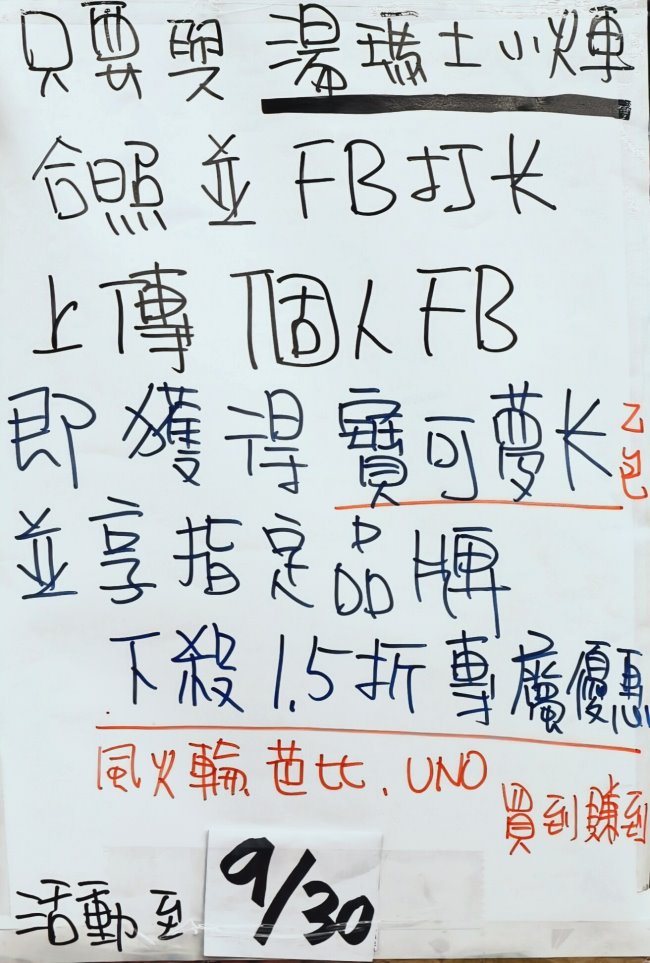 只要與 湯瑪士小火車
合照並FB打卡
上傳個人FB
即獲得寶可夢卡乙包
並享指定品牌
下殺1.5折專屬優惠
風火輪、芭比、UNO
買到賺到
活動到 9/30